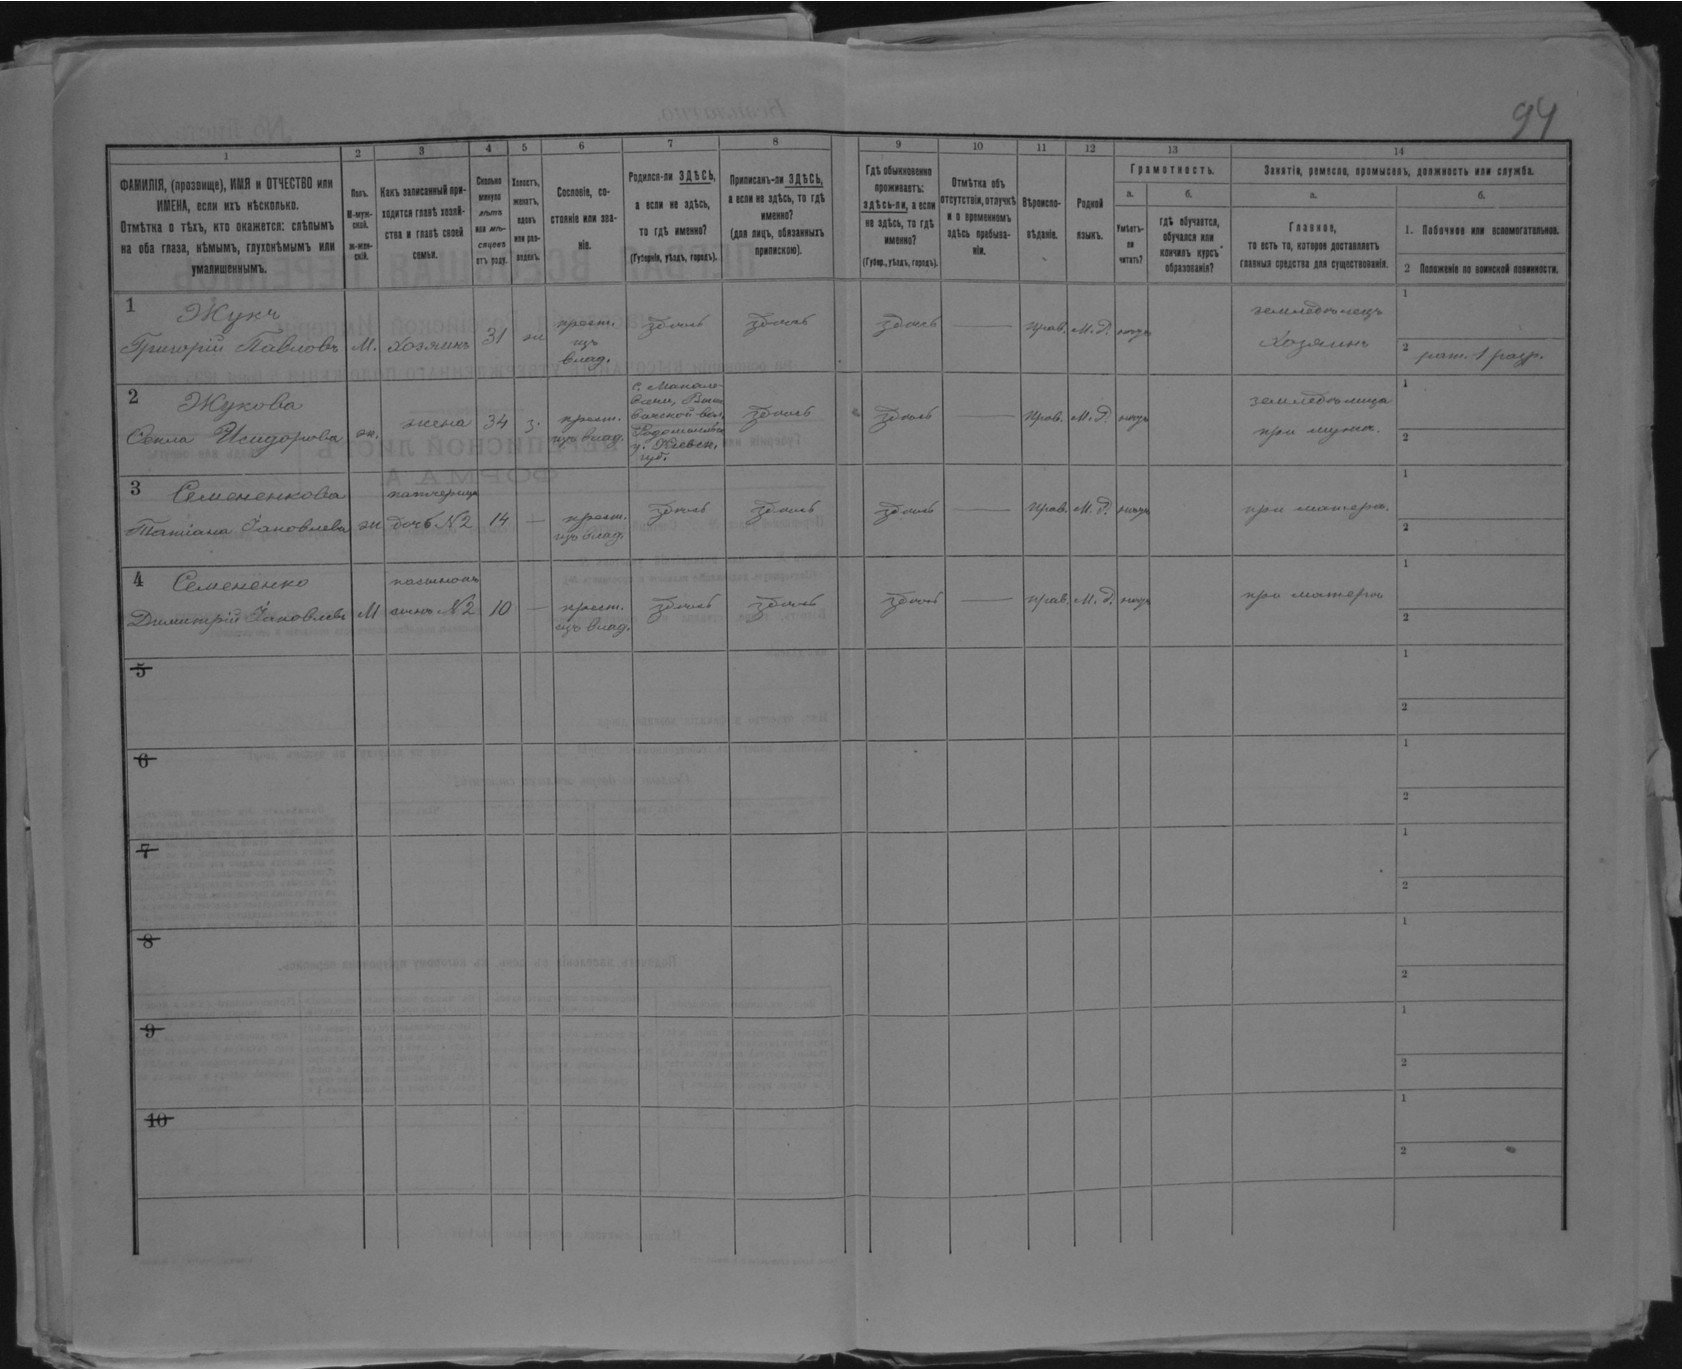 94
1
2
3
4
5
6
7
8
9
10
11
12
13
14
ФАМИЛІЯ, (прозвище), ИМЯ и ОТЧЕСТВО или
ИМЕНА, если ихъ нѣсколько.
Отмѣтка о тѣхъ, кто окажется: слѣпымъ
на оба глаза, нѣмымъ, глухонѣмымъ или
умалишеннымъ.
Полъ.
М-муж-
ской.
ж-жен-
скій.
Какъ записанный при-
ходится главѣ хозяй-
ства и главѣ своей
семьи.
Сколько
минуло
лѣтъ
или мѣ-
сяцевъ
отъ роду.
Холостъ,
женатъ,
вдовъ
или раз-
веденъ.
Сословіе, со-
стояніе или зва-
ніе.
Родился-ли ЗДѢСЬ,
а если не здѣсь,
то гдѣ именно?
(Губернія, уѣздъ, городъ).
Приписанъ-ли ЗДѢСЬ,
а если не здѣсь, то гдѣ
именно?
(для лицъ, обязанныхъ
припискою).
Гдѣ обыкновенно
проживаетъ:
здѣсь-ли, а если
не здѣсь, то гдѣ
именно?
(Губер., уѣздъ, городъ).
Отмѣтка объ
отсутствіи, отлучкѣ
и о временномъ
здѣсь пребыва-
ніи.
Вѣроиспо-
вѣданіе.
Родной
языкъ.
Грамотность.
а.
Умѣетъ-
ли
читать?
б.
гдѣ обучается,
обучался или
кончилъ курсъ
образованія?
Занятіе, ремесло, промыселъ, должность или служба.
а.
Главное,
то есть то, которое доставляетъ
главныя средства для существованія.
б.
1. Побочное или вспомогательное.
2 Положеніе по воинской повинности.
1
Жукъ
Григорій Павловъ
М.
Хозяинъ
31
ж
крест.
изъ
влад.
здѣсь
здѣсь
здѣсь
—
прав.
М. Р.
нѣтъ
земледѣлецъ
Хозяинъ
1
2
рат. 1 разр.
2
Жукова
Ѳекла Исидорова
ж.
жена
34
з.
крест.
изъ влад.
у. Кіевск.
губ.
здѣсь
здѣсь
—
прав.
М. Р.
нѣтъ
земледѣлица
при мужѣ.
1
2
3
Семененкова
Татіана Іаковлева
ж
патчерица
дочь №2
14
—
крест.
изъ влад.
здѣсь
здѣсь
здѣсь
—
прав.
М. Р.
нѣтъ
при матери.
1
2
4
Семененко
Димитрій Іаковлевъ
М
пасынокъ
сынъ №2
10
—
крест.
изъ влад.
здѣсь
здѣсь
здѣсь
—
прав.
М. Р.
нѣтъ
при матери
1
2
5
1
2
6
1
2
7
1
2
8
1
2
9
1
2
10
1
2